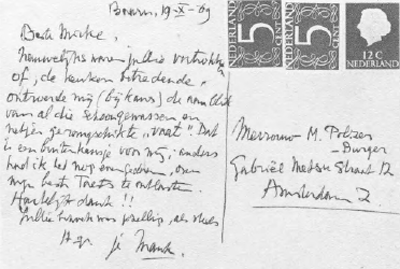 Baarn, 19-X-69
Beste Mieke,
Nauwelijks waren jullie vertrokken
of, de keuken betredende,
ontroerde mij (bijkans) de aanblik
van al die schoongewassen en
netjes gerangschikte "vaat". Dat
is een buitenkansje voor mij; anders
had ik het nog even gedaan, om
mijn beste Toets te ontlasten.
Hartelijk dank!!
Jullie bezoek was gezellig, als steeds
t.a.v. je Mauk.
NEDERLAND 5 CENT
NEDERLAND 5 CENT
12 C
NEDERLAND
Mevrouw M. Polzer
- Burger
Gabriël Metsu Straat 12
Amsterdam Z.